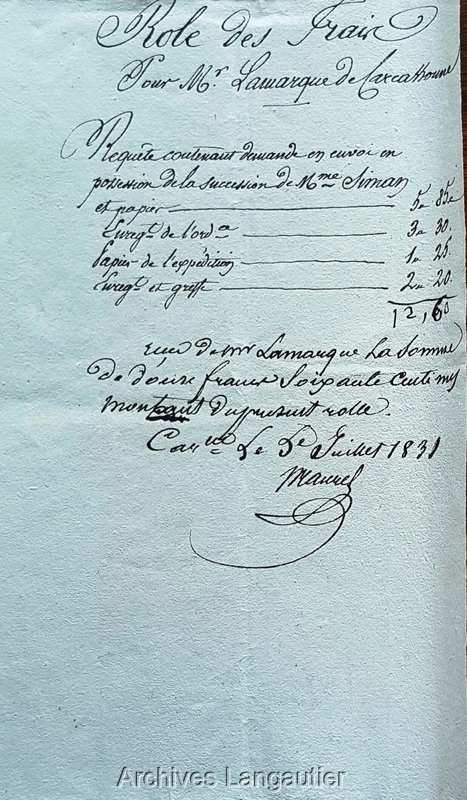 Role des Frais
Pour Mr. Lamarque de Carcassonne
Requête contenant demande en envoi en
possession de la succession de Mme Siman
et papier 5 85
Enregt. de l'orda 3 30.
Papier de l'expédition 1 25
Enregt. et greffe 2 20.
12,60
reçu de mr Lamarque La somme
de douze francs soixante centimes
montant du présent rolle.
Carne Le 5e Juillet 1831
Maurel
Archives Langautier